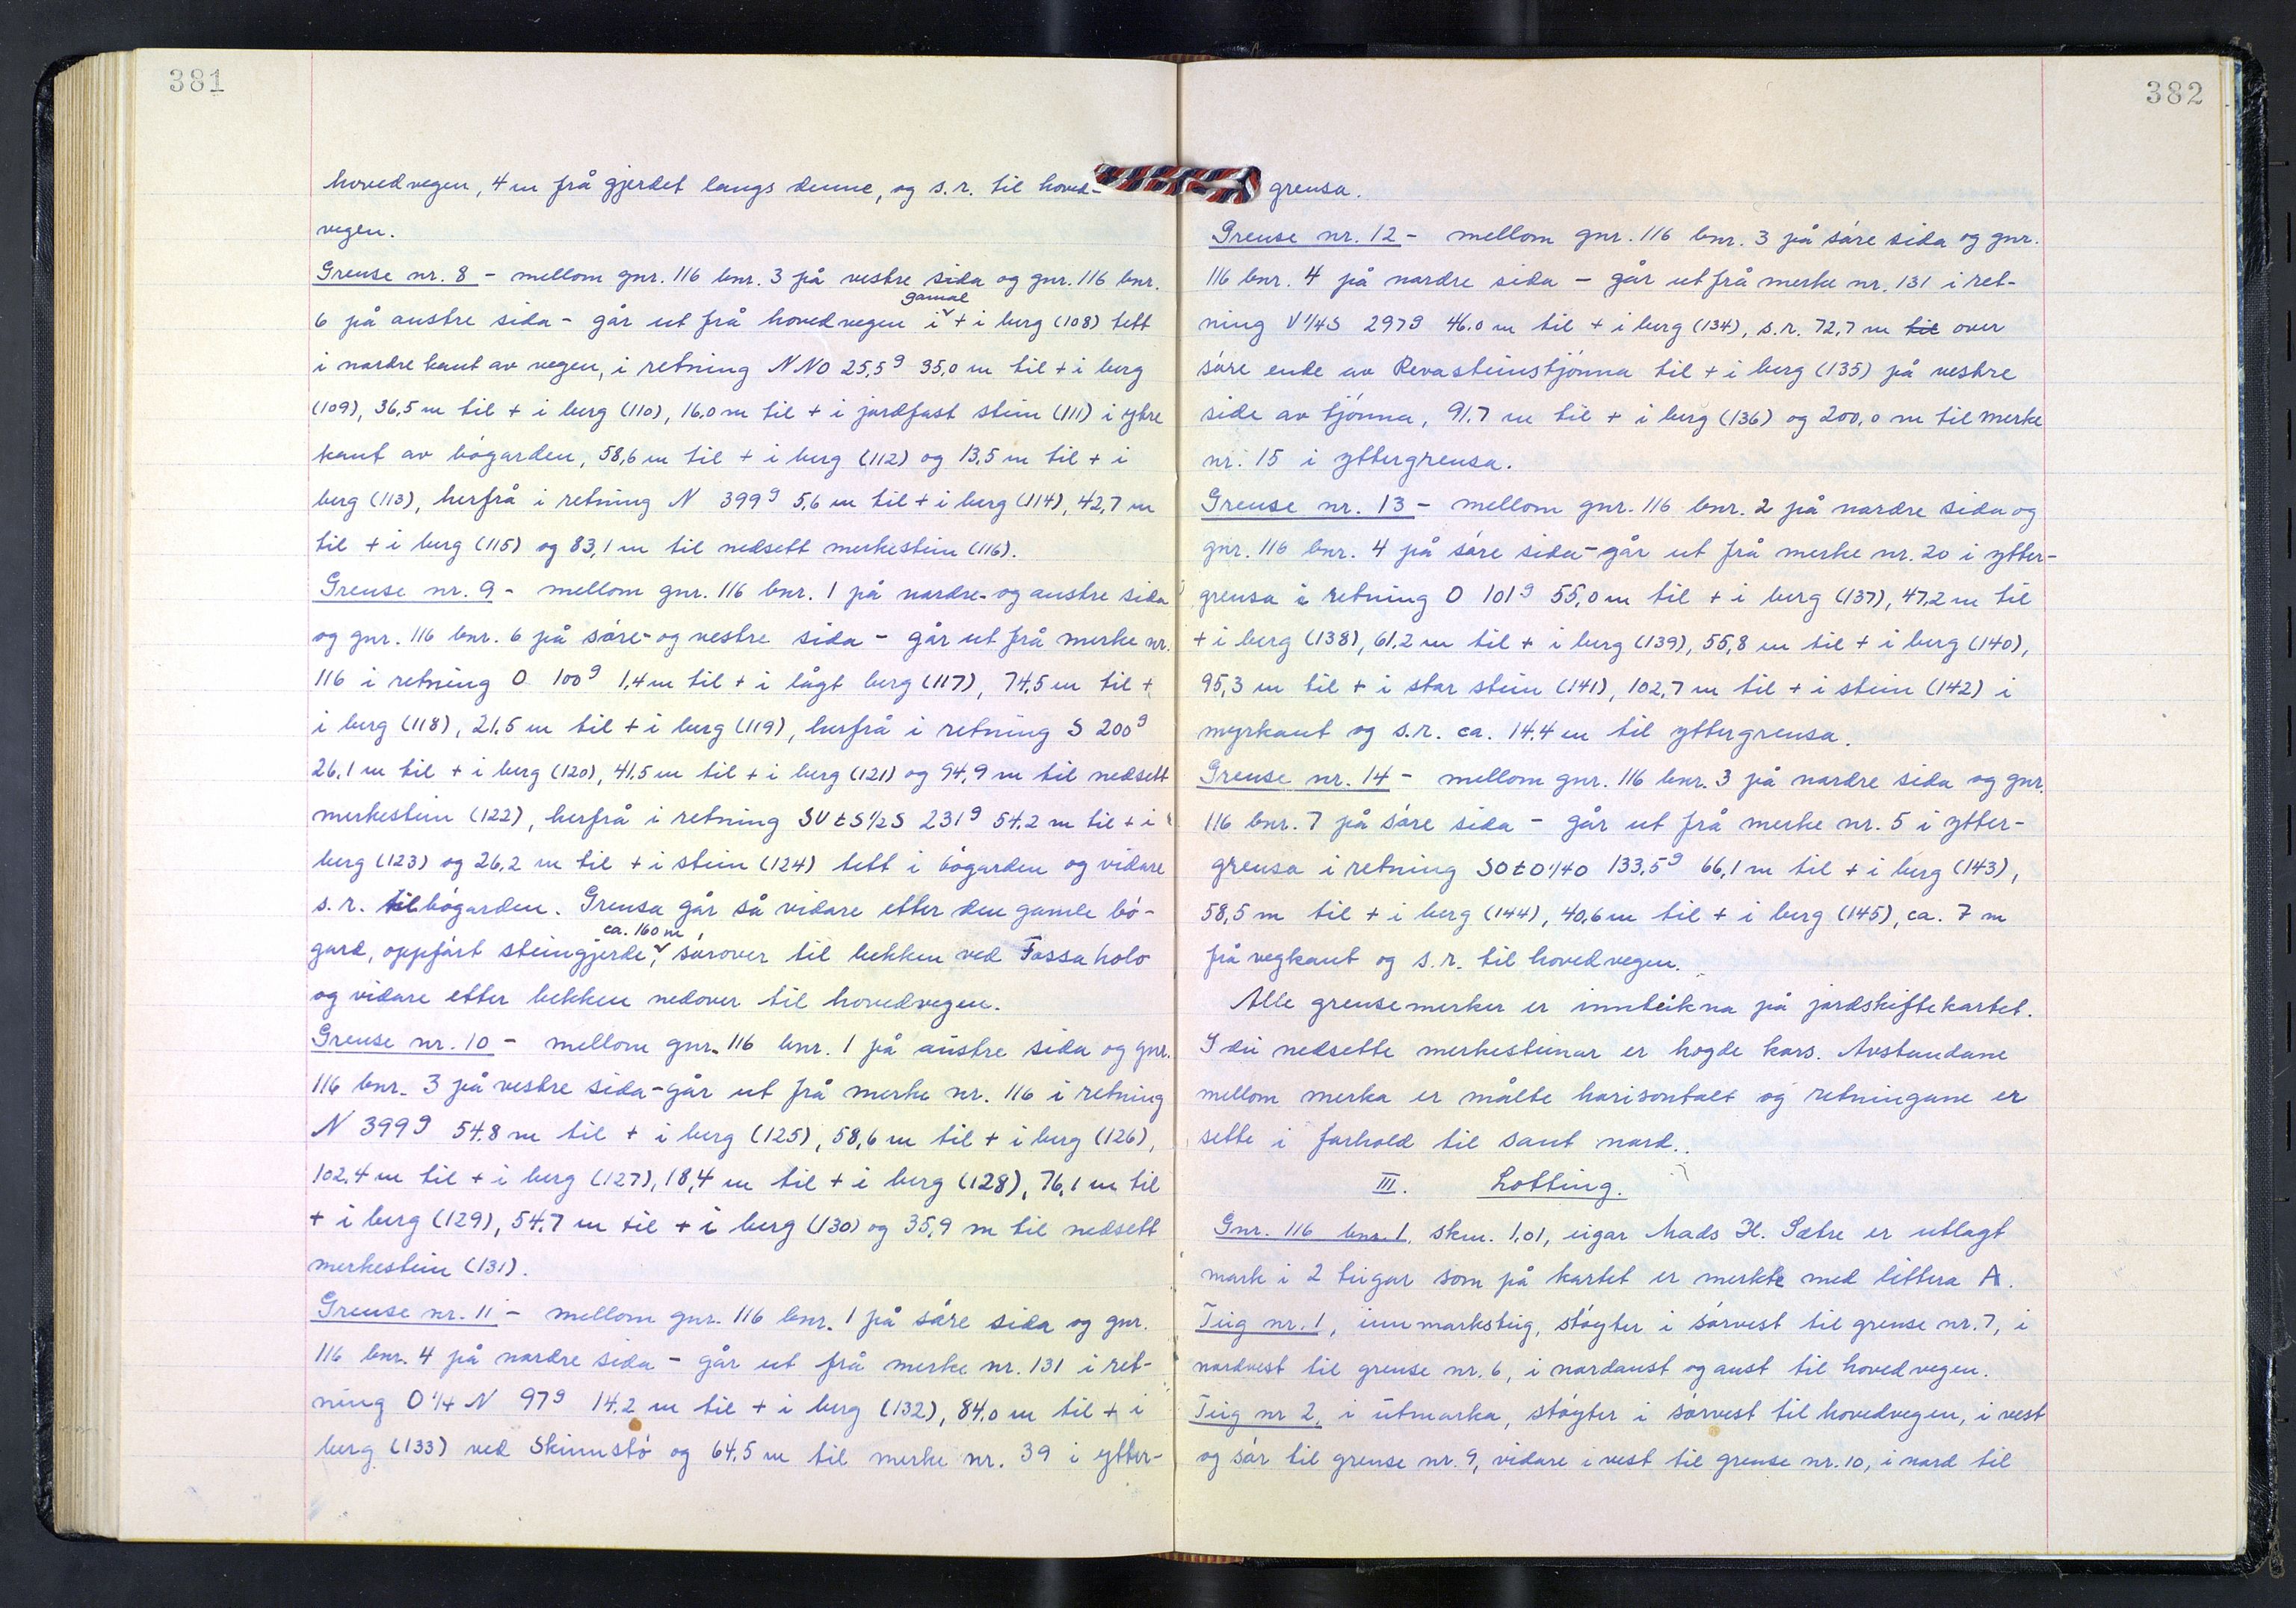 381
hovedvegen, 4 m frå gjerdet langs denne, og s.r. til hoved-
vegen.
Grense nr. 8 - mellom gnr. 116 bnr. 3 på vestre sida og gnr. 116 bnr.
gamal
6 på austre sida - går ut frå hovedvegen i + i berg (108) tett
i nordre kant av vegen, i retning NNO 25,5g 35,0 m til + i berg
(109), 36,5 m til + i berg (110), 16,0 m til + i jordfast stein (111) i ytre
kant av bøgarden, 58,6 m til + i berg (112) og 13,5 m til + i
berg (113), herfrå i retning N 399g 5,6 m til + i berg (114), 42,7 m
til + i berg (115) og 83,1 m til nedsett merkestein (116).
Grense nr. 9 - mellom gnr. 116 bnr. 1 på nordre- og austre sida
og gnr. 116 bnr. 6 på søre- og vestre sida - går ut frå merke nr.
116 i retning O 100g 1,4 m til + i lågt berg (117), 74,5 m til +
i berg (118), 21,5 m til + i berg (119), herfrå i retning S 200g
26,1 m til + i berg (120), 41,5 m til + i berg (121) og 94,9 m til nedsett
merkestein (122), herfrå i retning SVtS1/2S 231g 54,2 m til + i
berg (123) og 26,2 m til + i stein (124) tett i bøgarden og vidare
s.r. til bøgarden. Grensa går så vidare etter den gamle bø-
ca. 160 m
gard, oppført steingjerde, sørover til bekken ved Fossaholo
og vidare etter bekken nedover til hovedvegen.
Grense nr. 10 - mellom gnr. 116 bnr. 1 på austre sida og gnr.
116 bnr. 3 på vestre sida - går ut frå merke nr. 116 i retning
N 399g 54,8 m til + i berg (125), 58,6 m til + i berg (126),
102,4 m til + i berg (127), 18,4 m til + i berg (128), 76,1 m til
+ i berg (129), 54,7 m til + i berg (130) og 35,9 m til nedsett
merkestein (131).
Grense nr. 11 - mellom gnr. 116 bnr. 1 på søre sida og gnr.
116 bnr. 4 på nordre sida - går ut frå merke nr. 131 i ret-
ning O 1/4 N 97g 14,2 m til + i berg (132), 84,0 m til + i
berg (133) ved Skinnstø og 64,5 m til merke nr. 39 i ytter-
382
grensa.
Grense nr. 12 - mellom gnr. 116 bnr. 3 på søre sida og gnr.
116 bnr. 4 på nordre sida - går ut frå merke nr. 131 i ret-
ning V1/4S 297g 46,0 m til + i berg (134), s.r. 72,7 m til over
søre ende av Revasteinstjønna til + i berg (135) på vestre
side av tjønna, 91,7 m til + i berg (136) og 200,0 m til merke
nr. 15 i yttergrensa.
Grense nr. 13 - mellom gnr. 116 bnr. 2 på nordre sida og
gnr. 116 bnr. 4 på søre sida - går ut frå merke nr. 20 i ytter-
grensa i retning O 101g 55,0 m til + i berg (137), 47,2 m til
+ i berg (138), 61,2 m til + i berg (139), 55,8 m til + i berg (140),
95,3 m til + i stor stein (141), 102,7 m til + i stein (142) i
myrkant og s.r. ca. 14,4 m til yttergrensa.
Grense nr. 14 - mellom gnr. 116 bnr. 3 på nordre sida og gnr.
116 bnr. 7 på søre sida - går ut frå merke nr. 5 i ytter-
grensa i retning SOtO1/4O 133,5g 66,1 m til + i berg (143),
58,5 m til + i berg (144), 40,6 m til + i berg (145), ca. 7 m
frå vegkant og s.r. til hovedvegen.
Alle grensemerker er innteikna på jordskiftekartet.
I dei nedsette merkesteinar er hogde kors. Avstandane
mellom merka er målte horisontalt og retningane er
sette i forhold til sant nord.
III. Lotting.
Gnr. 116 bnr. 1, skm. 1,01, eigar Mads H. Sætre er utlagt
mark i 2 teigar som på kartet er merkte med littera A.
Teig nr. 1, innmarksteig, støyter i sørvest til grense nr. 7, i
nordvest til grense nr. 6, i nordaust og aust til hovedvegen.
Teig nr 2, i utmarka, støyter i sørvest til hovedvegen, i vest
og sør til grense nr. 9, vidare i vest til grense nr. 10, i nord til